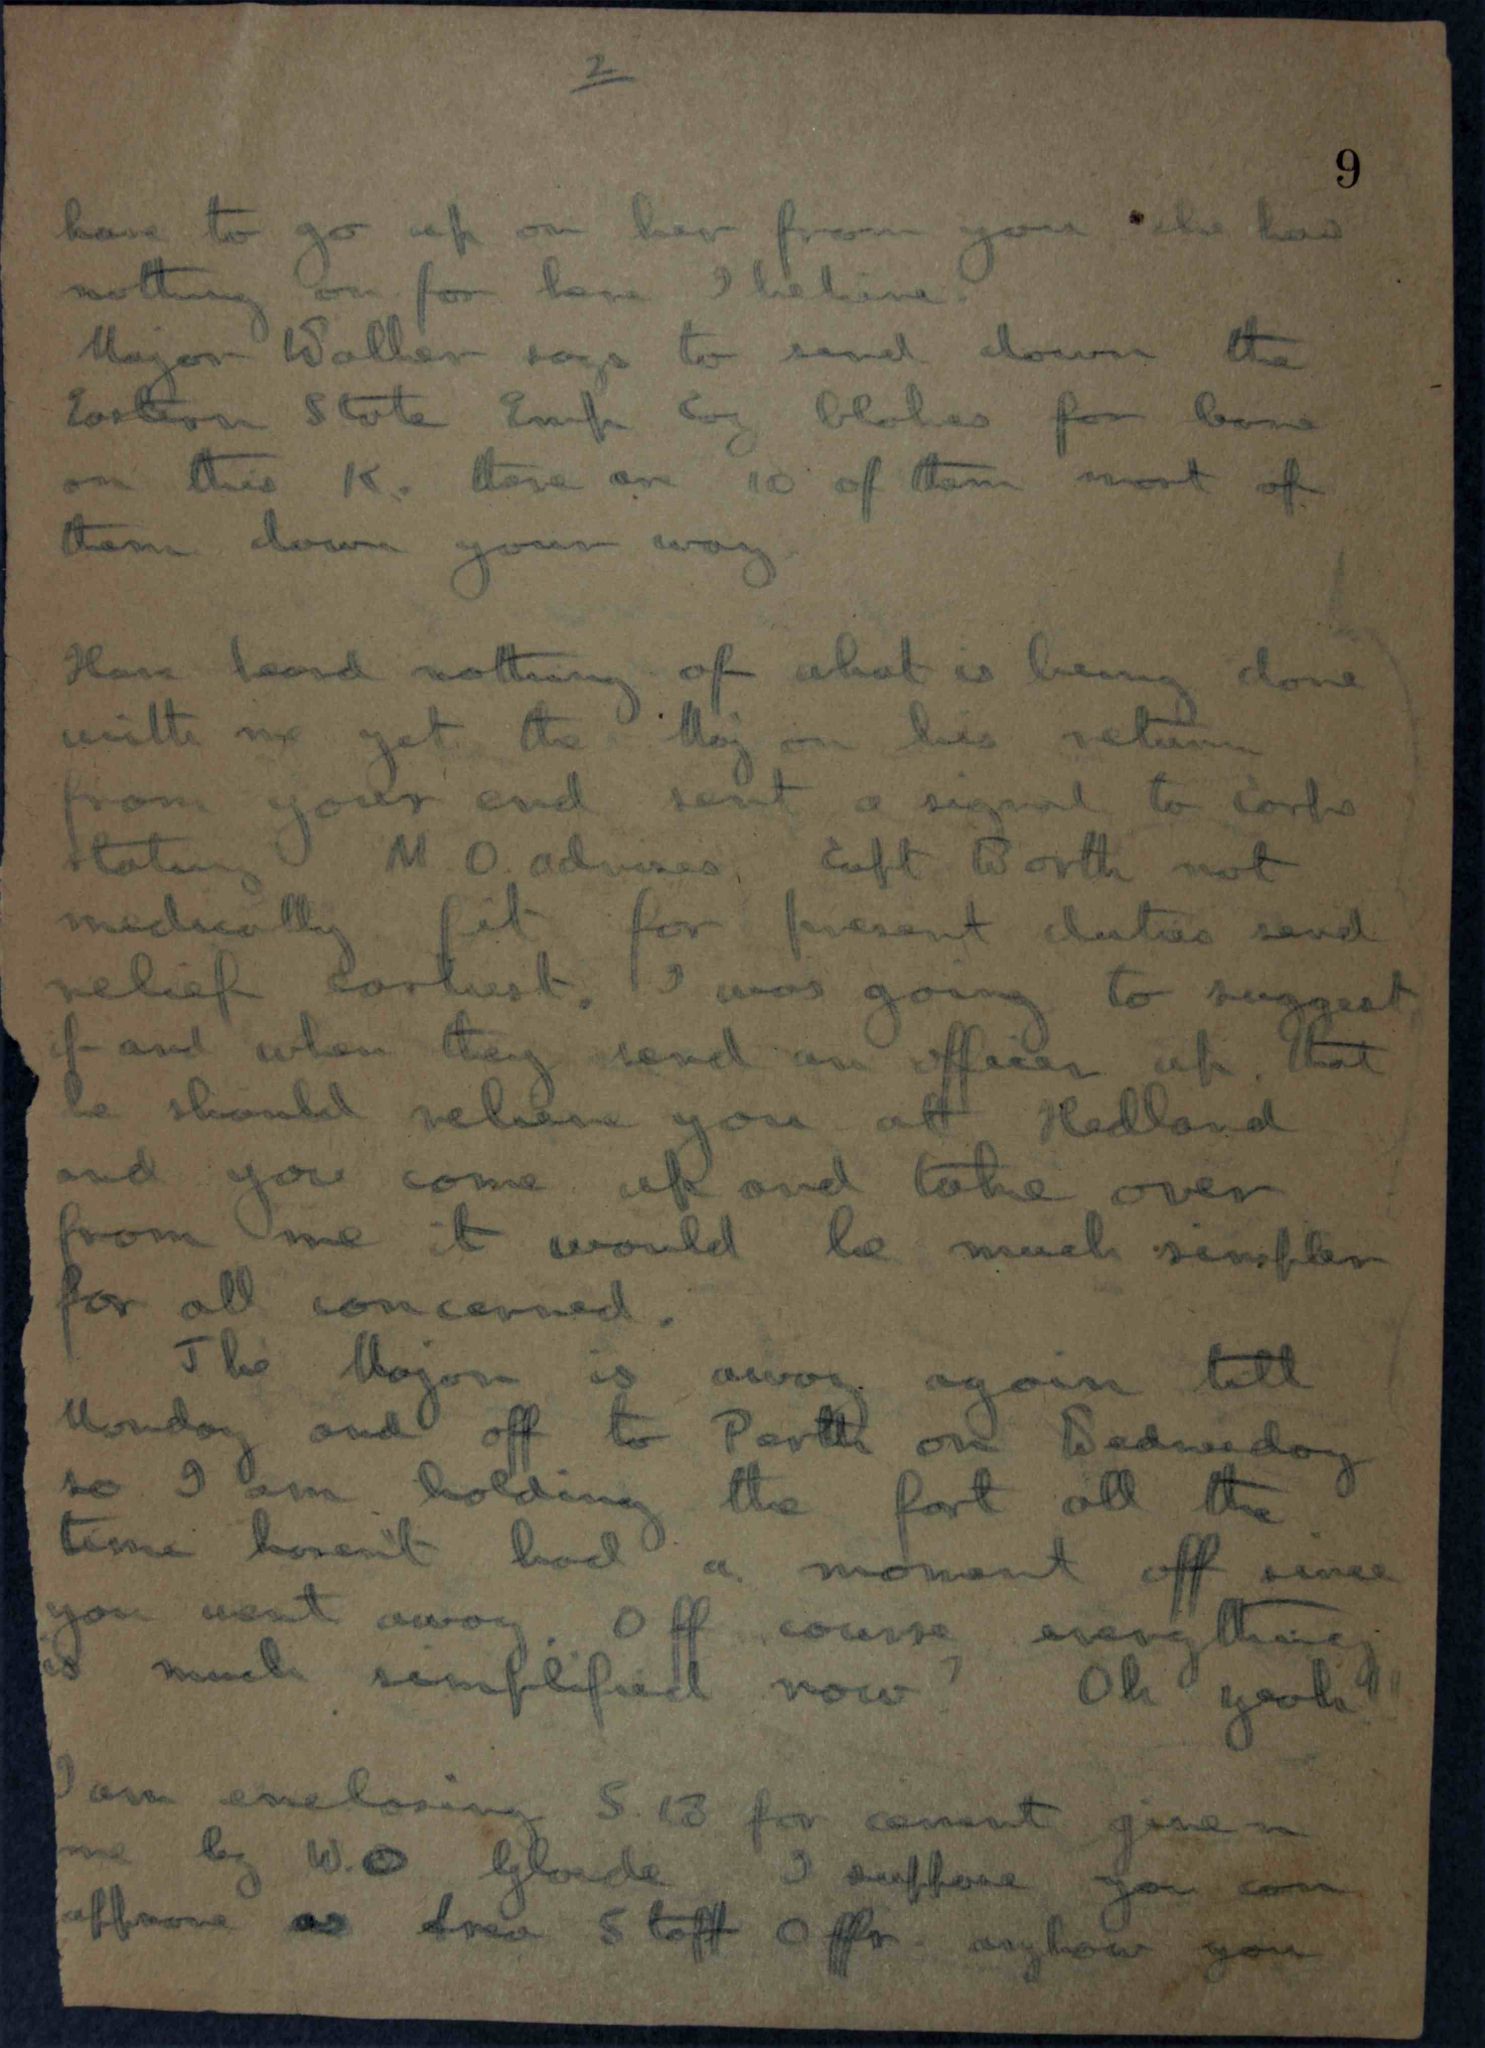 2
9
have to go up on her from you she has
nothing on for here I believe.
Major Walker says to send down the
Eastern State Emp Coy blokes for leave
on this K. there are 10 of them most of
them down your way.
Have heard nothing of what is being done
with me yet the Maj on his return
from your end sent a signal to Corps
stating M.O. advises Capt Worth not
medically fit for present duties send
relief earliest. I was going to suggest
if and when they send an officer up that
he should relieve you at Hedland
and you come up and take over
from me it would be much simpler
for all concerned.
The Major is away again till
Monday and off to Perth on Wednesday
so I am holding the fort all the
time haven't had a moment off since
you went away. Off course everything
is much simplified now? Oh yeah"
I am enclosing S.13 for cement given
me by W.O I suppose you can
approve as Area Staff Offr. anyhow you